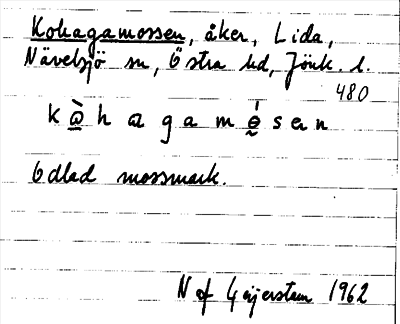 Kohagamossen, åker, Lida,
Nävelsjö sn, Östra hd, Jönk. l.
480
Odlad mossmark.
N af Geijerstam 1962